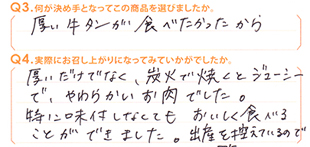 Q3.何が決め手となってこの商品を選びましたか。
厚い牛タンが食べたかったから
Q4.実際にお召し上がりになってみていかがでしたか。
厚いだけでなく、炭火で焼くとジューシー
で、やわらかいお肉でした。
特に味付しなくても おいしく食べる
ことができました。出産を控えているので